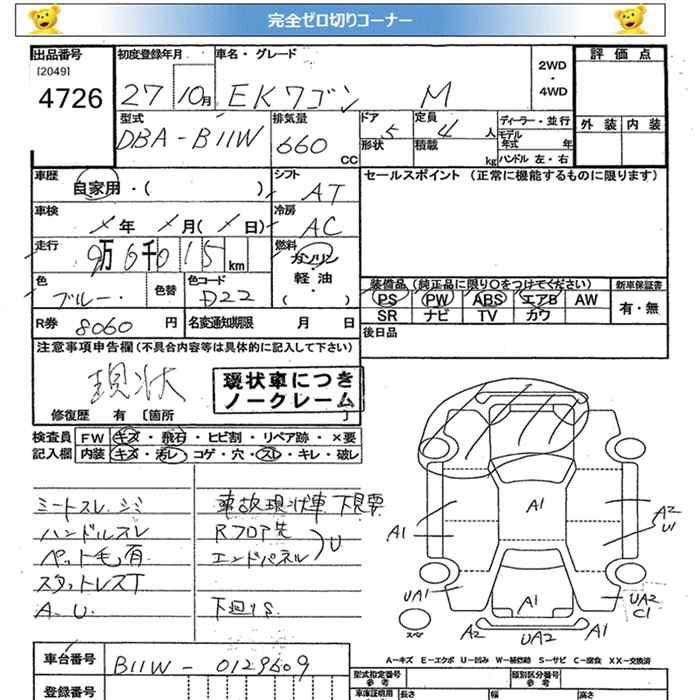 完全ゼロ切りコーナー
出品番号 初度登録年月 車名・グレード 2WD ・ 4WD 評価点
[2049]
4726
27 10月 EKワゴン M
型式 排気量 ドア 定員 ディーラー・並行 外装 内装
DBA-B11W 660 CC 5 4人 モデル年式 年
形状 積載 kg ハンドル 左・右
車歴 自家用・( ) シフト AT
セールスポイント (正常に機能するものに限ります)
車検 年 月( 日) 冷房 AC
走行 9万6千015km 燃料 ガソリン・軽油・( )
色 ブルー・ 色替 色コード D22
装備品 (純正品に限り○をつけてください) 新車保証書
PS PW ABS エアB AW 有・無
SR ナビ TV カワ
R券 8060円 名変通知期限 月 日
後日品
注意事項申告欄(不具合内容等は具体的に記入して下さい)
現状
現状車につき
ノークレーム
修復歴 有 〔箇所 〕
検査員 FW キズ・飛石・ヒビ割・リペア跡・×要
記入欄 内装 キズ・汚レ・コゲ・穴・スレ・キレ・破レ
シートスレ、シミ
ハンドルスレ
ペット毛有
スタットレスT
A.U.
事故現状車 下見要
Rフロア先
エンドパネル
U
下回りS
A1
A1
A2
U1
UA1
A1
UA2
C1
スペア
A2
UA2
A1
A-キズ E-エクボ U-凹み W-補修跡 S-サビ C-腐食 XX-交換済
車台番号 B11W-0129609
登録番号
型式指定番号 参考 類別区分番号 参考
車庫証明用 長さ 幅 高さ